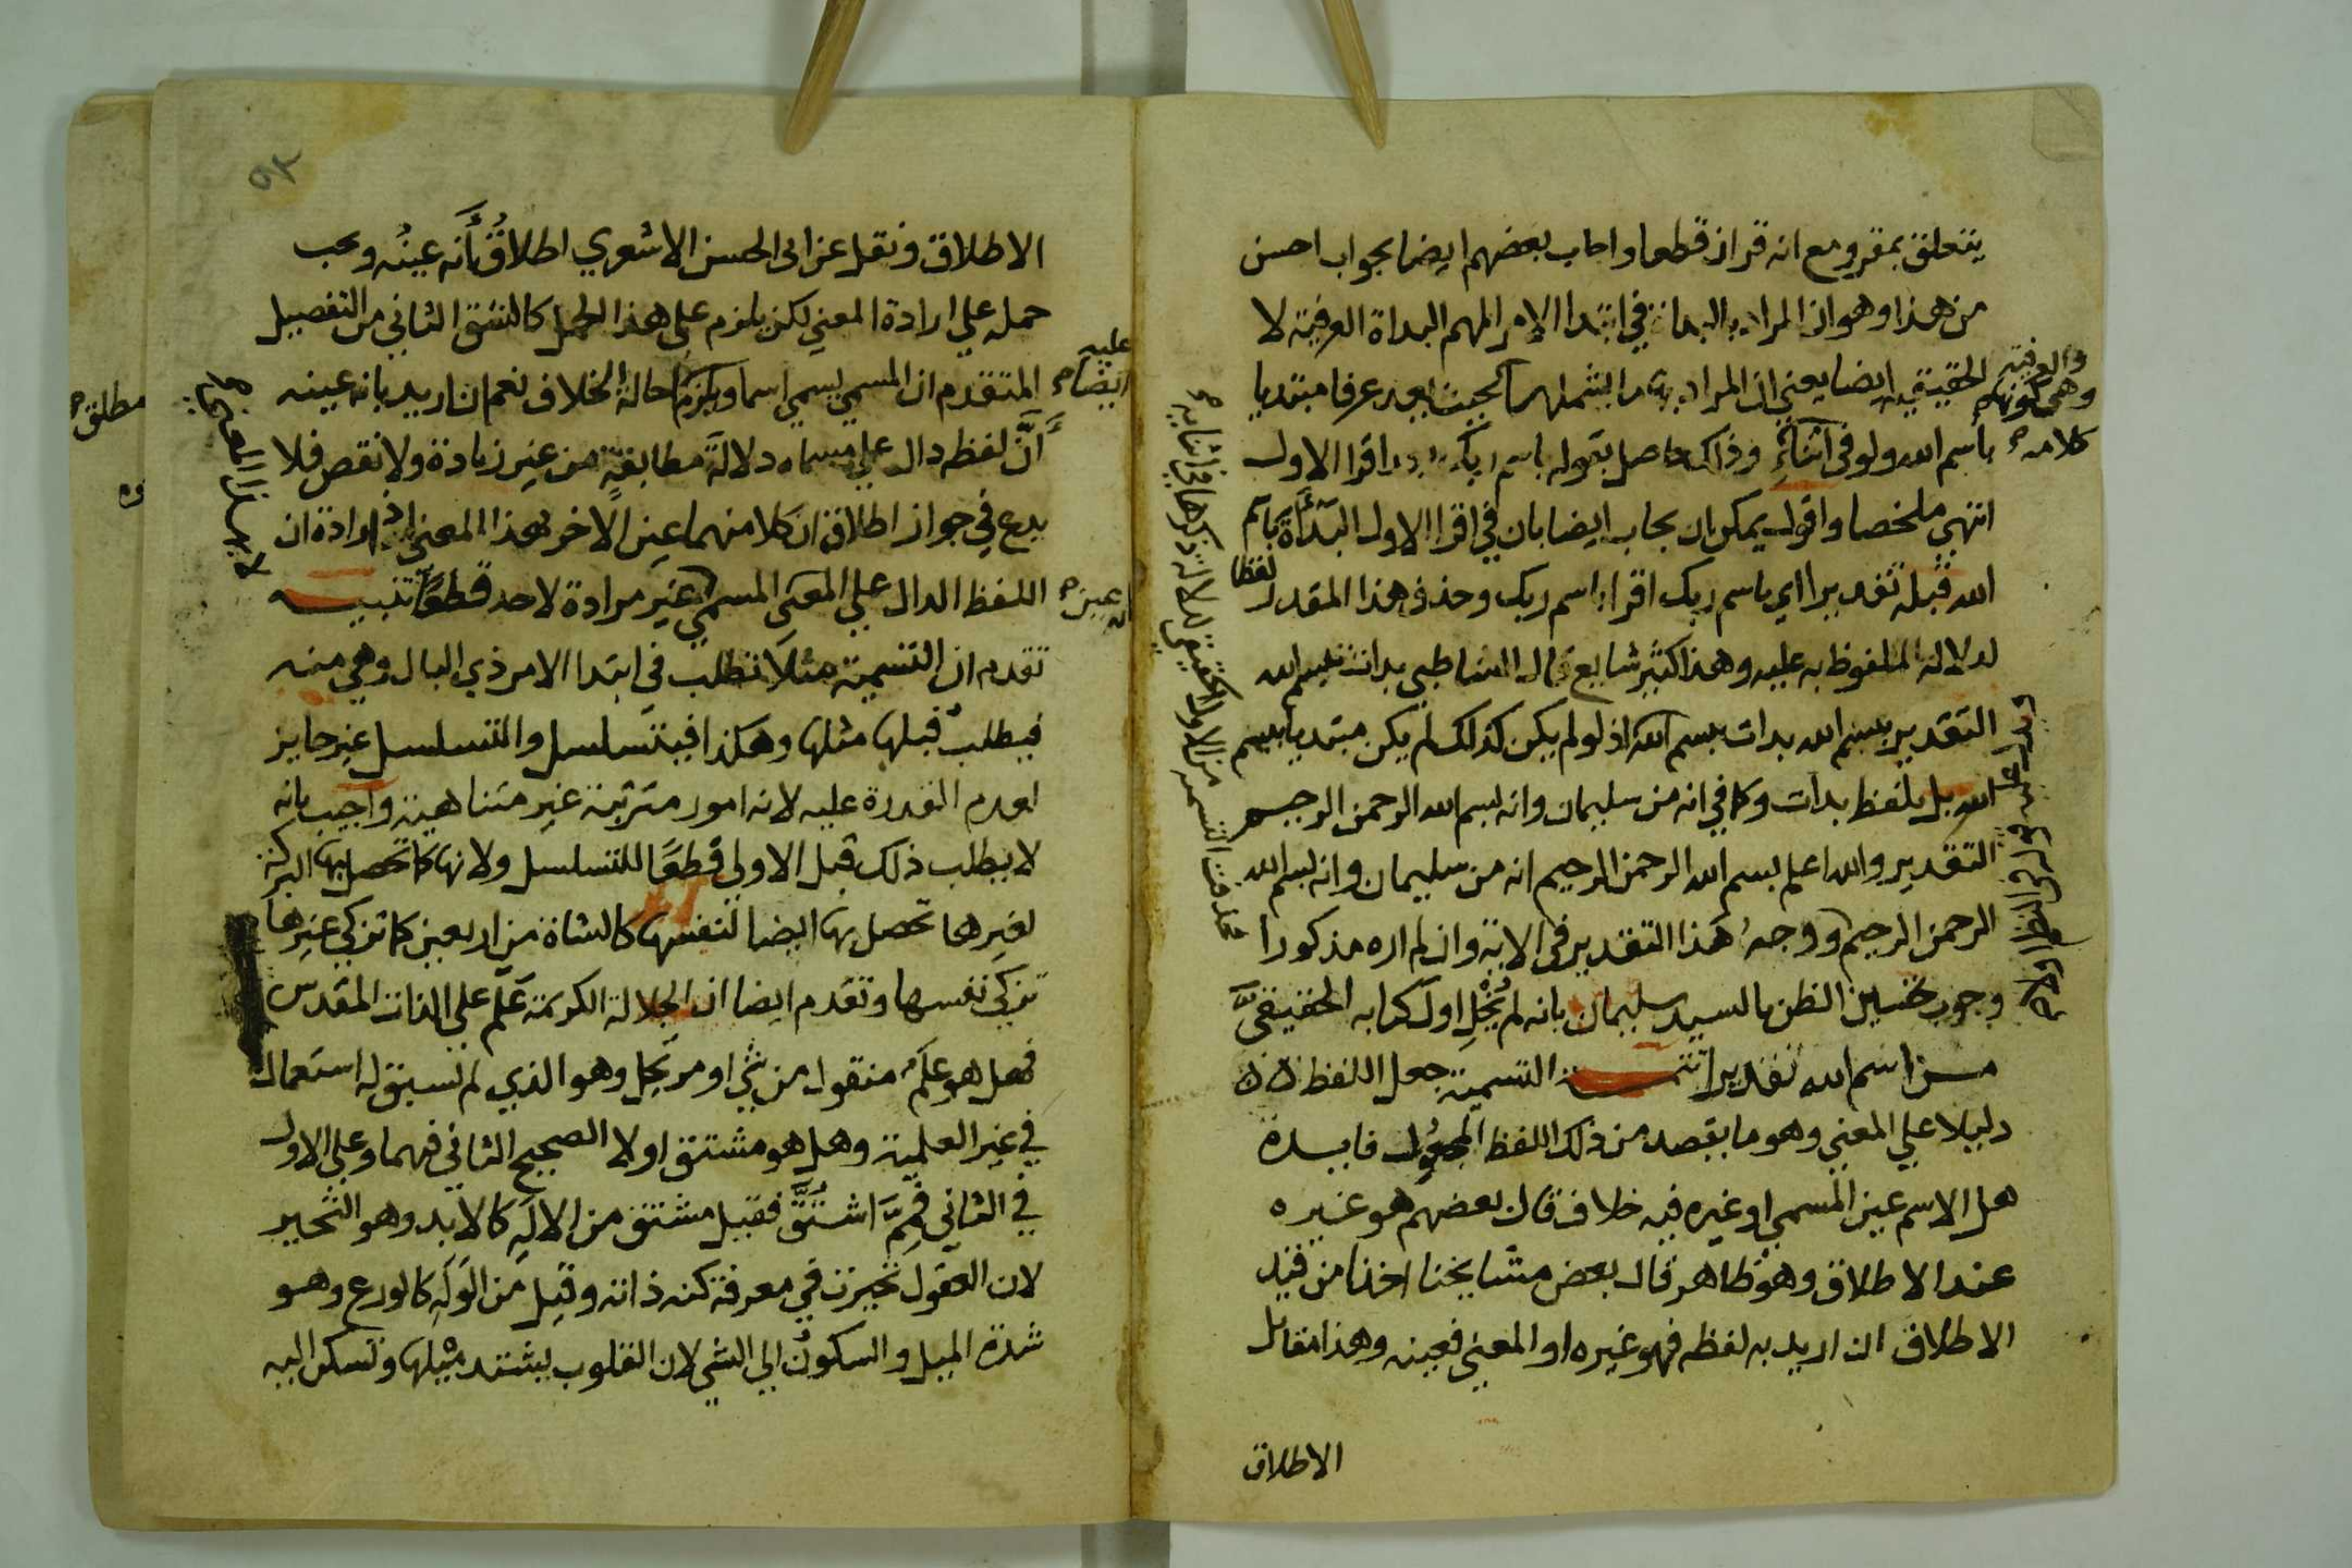 يتعلق بمقر ومع انه قران قطعا واجاب بعضهم ايضا بجواب احسن
من هذا وهو ان المراد بالبداة في ابتدا الامر المهم البداة العرفية لا
الحقيقية ايضا يعني ان المراد به ما يشملهما بحيث يعد عرفا مبتديا
والعرفية
وهي كونه
باسم الله ولو في اثناء وذلك حاصل بقوله باسم ربك بعد اقرا الاول
كلامه
انتهي ملخصا واقول يمكن ان يجاب ايضا بان في اقرا الاول البدأة باسم
الله قبله تقديرا اي باسم ربك اقرا باسم ربك وحذف هذا المقدر
لفظا
لدلالة الملفوظ به عليه وهذا كثير شايع قال الشاطبي بدات ببسم الله
التقدير ببسم الله بدات ببسم الله اذ لو لم يكن كذلك لم يكن مبتديا ببسم
الله بل بلفظ بدات وكما في انه من سليمان وانه بسم الله الرحمن الرحيم
التقدير والله اعلم بسم الله الرحمن الرحيم انه من سليمان وانه بسم الله
الرحمن الرحيم ووجه هذا التقدير في الاية وان لم اره مذكورا
وجوب تحسين الظن بالسيد سليمان بانه لم يُخْلِ اول كتابه الحقيقيَّ
من اسم الله تقديرا تتمة التسمية جعل اللفظ
دليلا علي المعني وهو ما يقصد من ذلك اللفظ المجعول فايدة
هل الاسم عين المسمي او غيره فيه خلاف قال بعضهم هو غيره
عند الاطلاق وهو ظاهر قال بعض مشايخنا اخذا من قيد
الاطلاق ان اريد به لفظه فهو غيره او المعني فعينه وهذا مقابل
الاطلاق
الاطلاق ونقل عن ابي الحسن الاشعري اطلاقُ أنه عينُه ويجب
حمله علي ارادة المعني لكن يلزم علي هذا الحمل كالشق الثاني من التفصيل
المتقدم ان المسمي يسمي اسما ويلزم احالة الخلاف نعم ان اريد بانه عينه
عليه
ايضا
أنَّ لفظه دال علي مسماه دلالةً مطابقةٍ من غير زيادة ولا نقص فلا
بدع في جواز اطلاق ان كلا منهما عين الاخر بهذا المعني اذ ارادة ان
اللفظ الدال علي المعني المسمي غير مرادة لاحد قطعًا تنبيه
عين
تقدم ان التسمية مثلًا تطلب في ابتدا الامر ذي البال وهي منه
فيطلب قبلها مثلها وهكذا فيتسلسل والتسلسل غير جايز
لعدم القدرة عليه لانه امور مترتبة غير متناهية واجيب بانه
لا يطلب ذلك قبل الاولي قطعًا للتسلسل ولانها كما تحصل بها البركة
لغيرها تحصل بها ايضا لنفسها كالشاة من اربعين كما تزكي غيرها
تزكي نفسها وتقدم ايضا ان الجلالة الكريمة عَلَم علي الذات المقدس
فهل هو عَلَم منقول من شي او مرتجل وهو الذي لم يسبق له استعمال
في غير العلمية وهل هو مشتق اولا الصحيح الثاني فيهما وعلي الاول
في الثاني فمِمَّ اشتُقَّ فقيل مشتق من الالَهِ كالابد وهو التحير
لان العقول تحيرت في معرفة كنه ذاته وقيل من الوَلَهِ كالورع وهو
شدة الميل والسكونُ الي الشي لان القلوب يشتد ميلها وتسكن اليه
مطلق